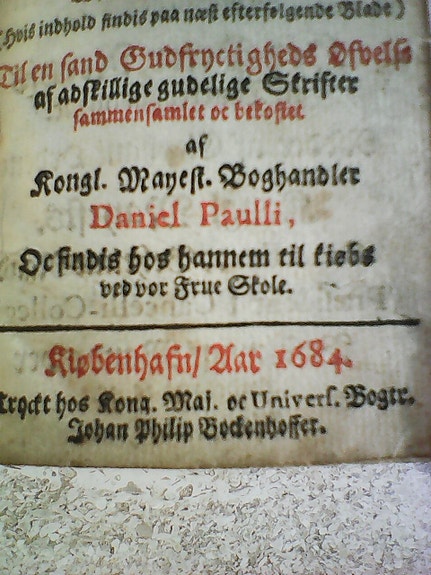 (Hvis indhold findis paa næst efterfølgende Blade)
Til en sand Gudfryctigheds Øfvelse
af adskillige gudelige Skrifter
sammensamlet oc bekostet
af
Kongl. Mayest. Boghandler
Daniel Paulli,
Oc findis hos hannem til kiøbs
ved vor Frue Skole.
Kiøbenhafn/ Aar 1684.
Tryckt hos Kong. Maj. oc Univers. Bogtr.
Johan Philip Bockenhoffer.